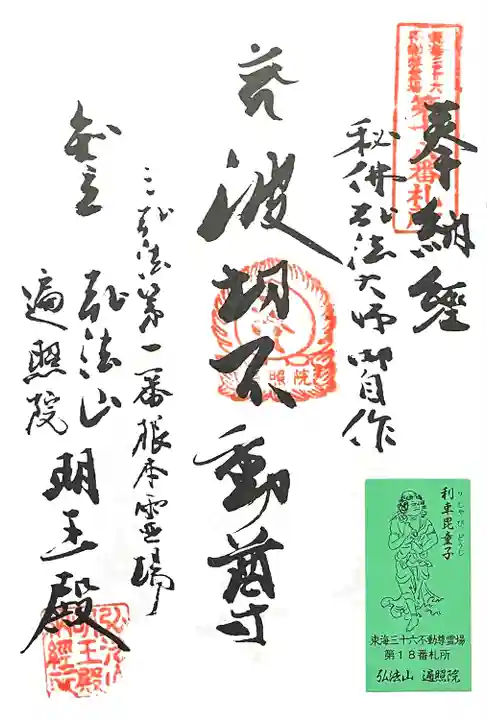 東海三十六
不動尊霊場
第十八番札所
奉納經
秘佛弘法大師御自作
波切不動尊
照院
三弘法第一番根本霊場
弘法山
遍照院
明王殿
利車毘童子
りしゃびどうじ
東海三十六不動尊霊場
第18番札所
弘法山 遍照院